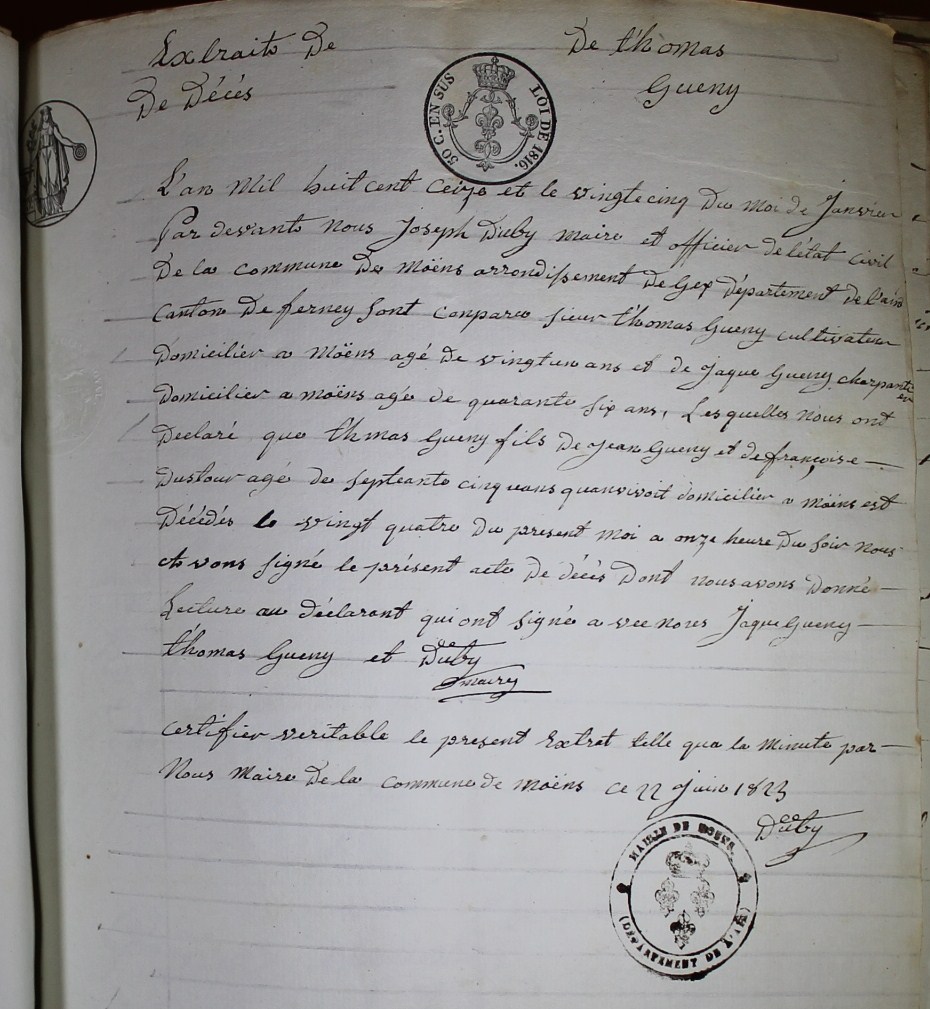 Extrait De De Thomas
De Décés Gueny
50 C. EN SUS LOI DE 1816.
L'an Mil huit cent Ceize et le vingtecinq Du moi de Janvier
Par devante Nous Joseph Duby maire et officier de l'état civil
De la commune De Moëns arrondissement De Gex Département de l'ain
Canton De ferney Sont conparu sieur thomas Gueny cultivateur
Domicilier a Moëns agé De vingtun ans et de jaque Gueny charpantier
Domicilier a moëns agé de quarante six ans, Lesquelles Nous ont
Declaré que thmas Gueny fils De Jean Gueny et de françoise
Dustour agé de septeante cinq ans quanvivoit domicilier a moëns est
Décédés le vingt quatre du present moi a onze heure Du soir Nous
avons signé le présent acte De décés Dont nous avons Donné
Lecture au déclarant qui ont signé a vec nous Jaque Gueny
thomas Gueny et Duby
maire
certifier veritable le present Extret telle qua la Minute par
Nous Maire De la commune de moëns ce 22 Juin 1823
Duby
MAIRIE DE MOENS.
(DÉPARTEMENT DE L'AIN)